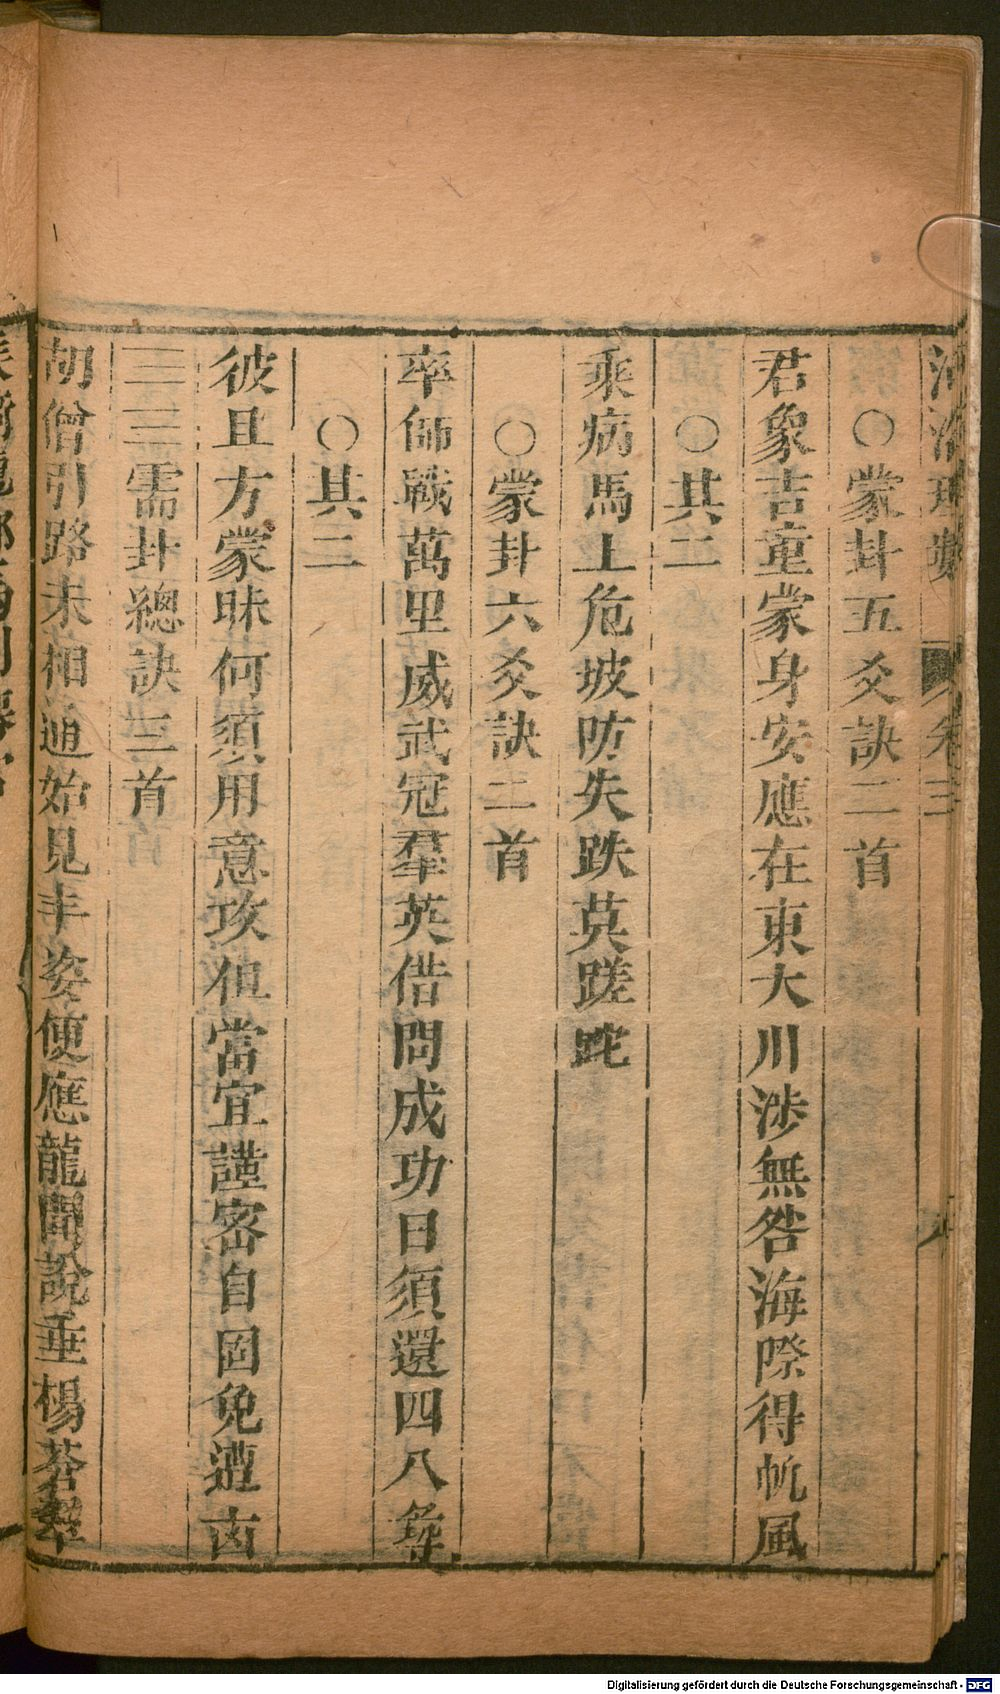 河洛理數 卷三
○蒙卦五爻訣二首
君象吉童蒙身安應在東大川涉無咎海際得帆風
○其二
乘病馬上危坡防失跌莫蹉跎
○蒙卦六爻訣二首
率師戰萬里威武冠羣英借問成功日須還四八
○其二
彼且方蒙昧何須用意攻但當宜謹密自固免遭凶
三三需卦總訣三首
胡僧引路未相通始見丰姿便應龍聞說垂楊蒼翠
Digitalisierung gefördert durch die Deutsche Forschungsgemeinschaft - DFG